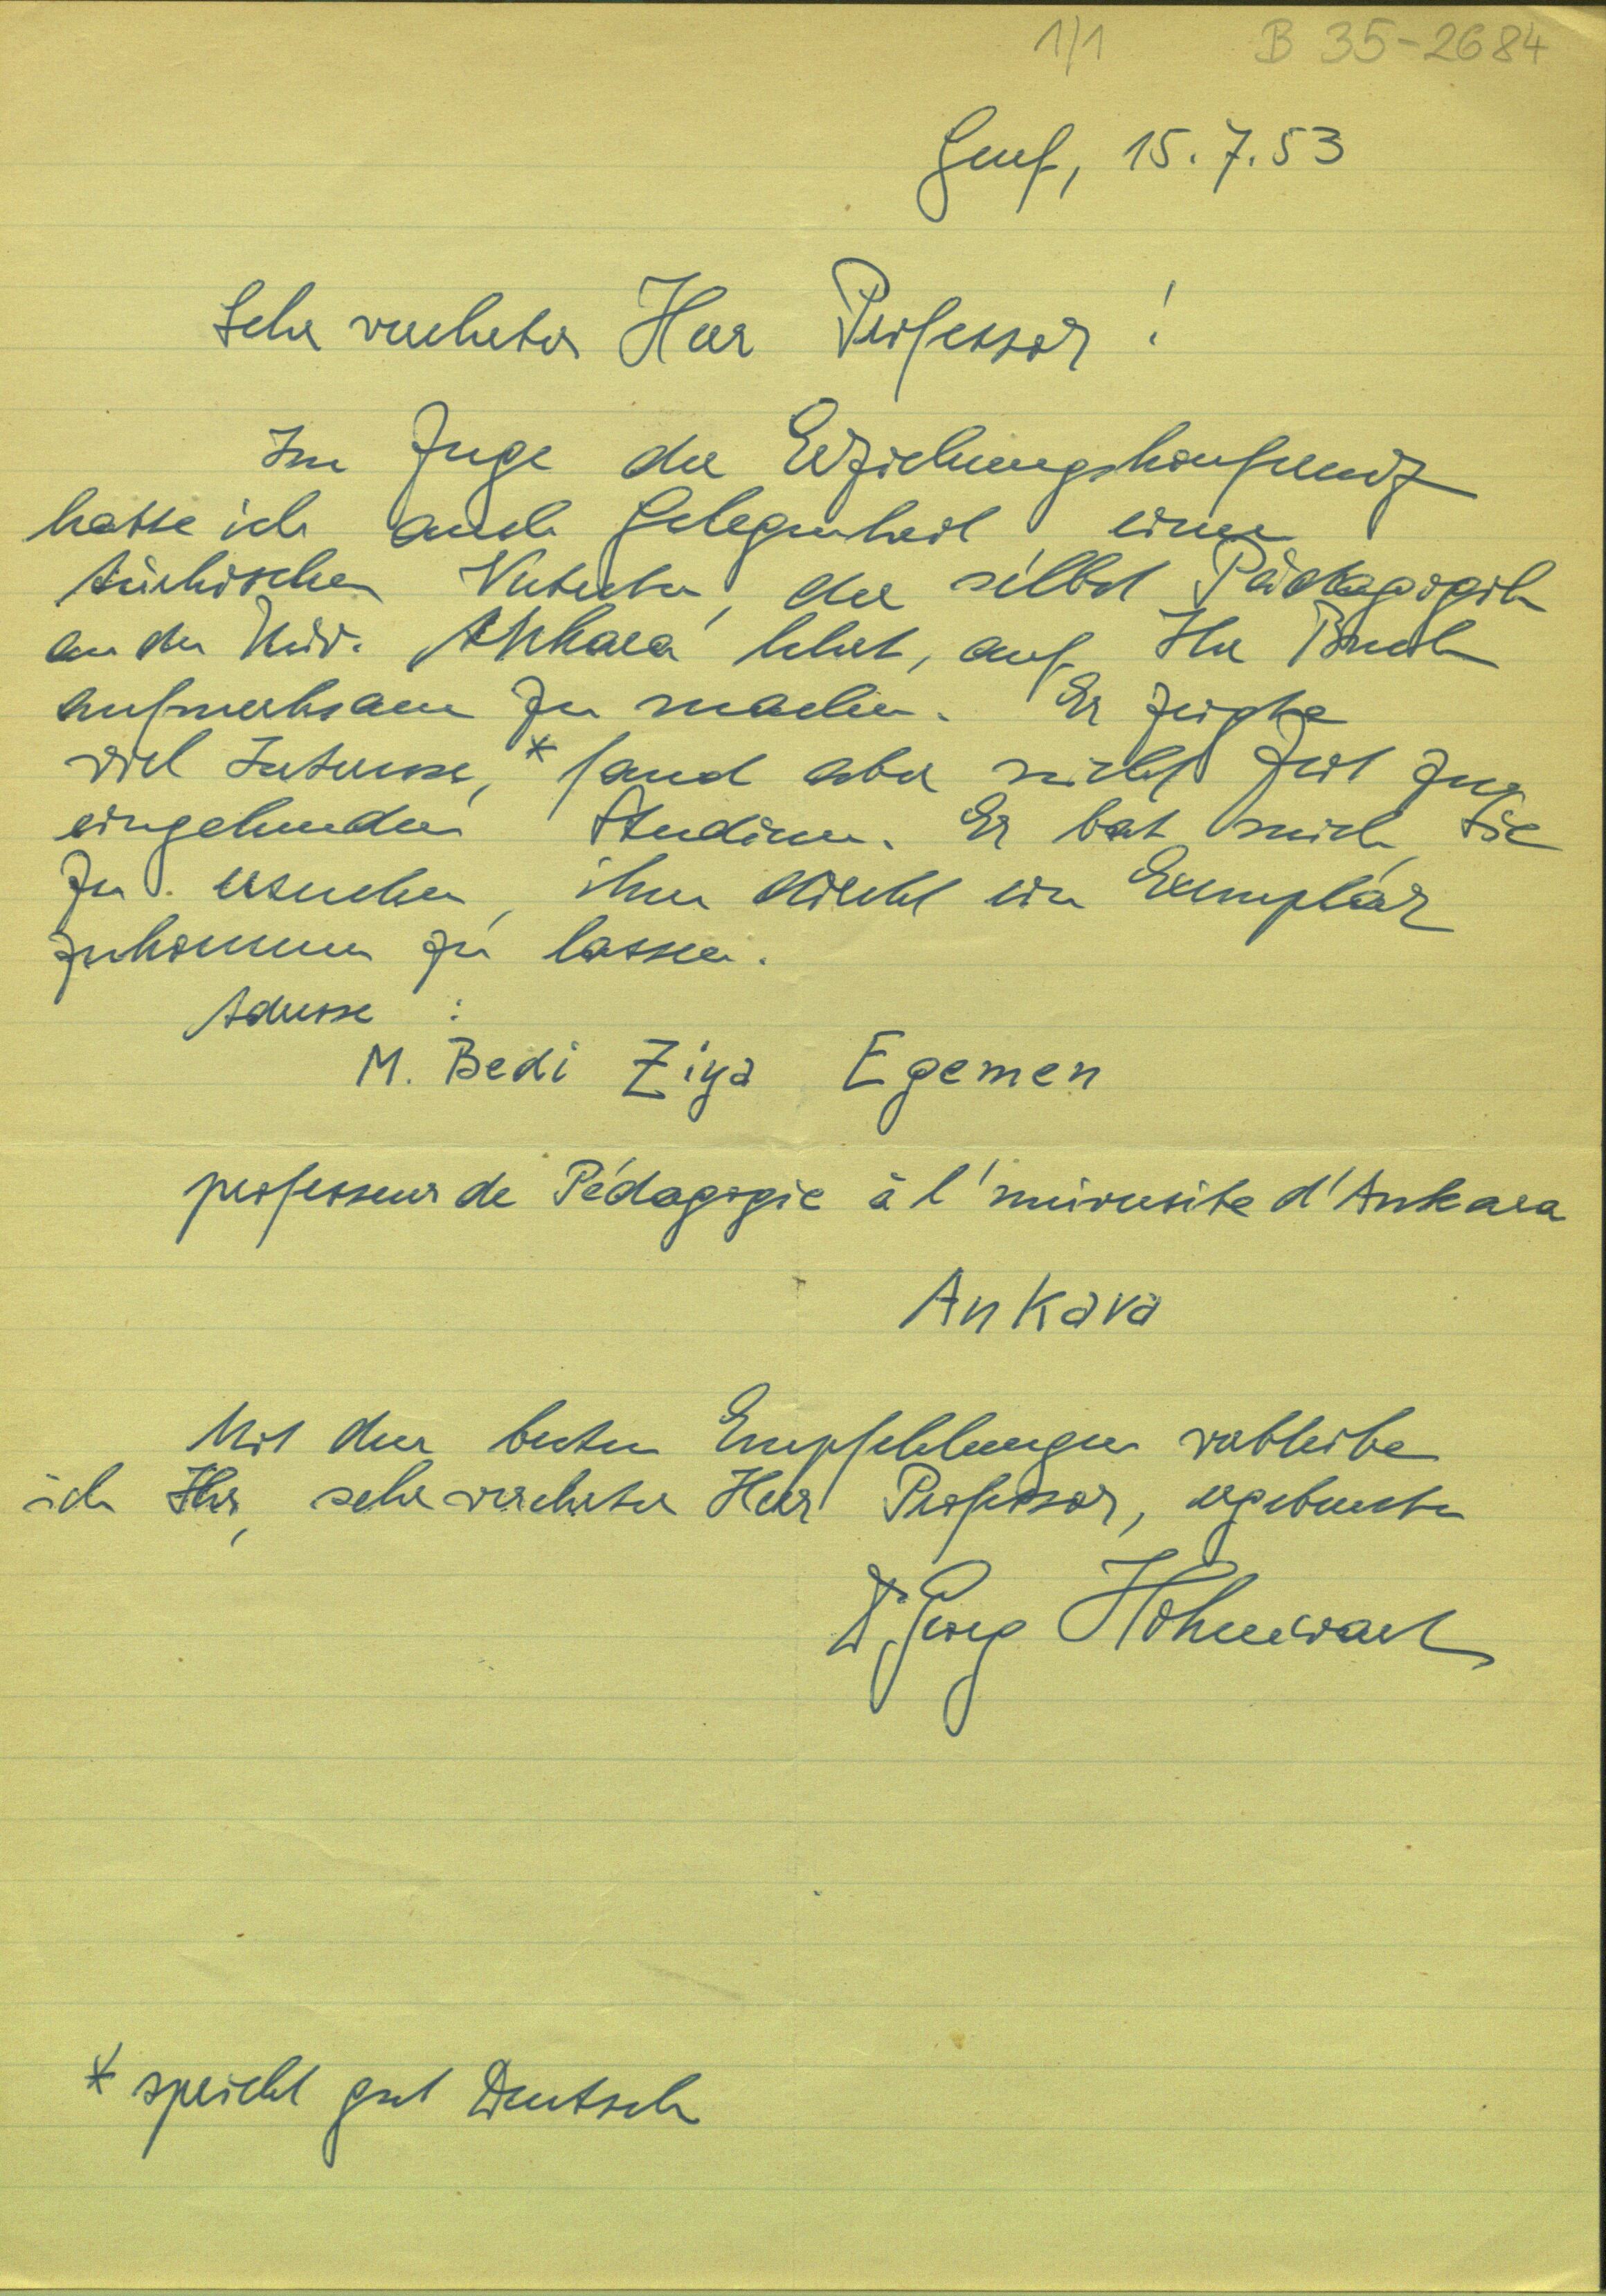 1/1 B 35-2684
Genf, 15.7.53
Sehr verehrter Herr Professor!
Im Zuge der Erziehungskonferenz
hatte ich auch Gelegenheit einen
türkischen Vertreter, der selbst Pädagogik
an der Univ. Ankara lehrt, auf Ihr Buch
aufmerksam zu machen. Er zeigte
viel Interesse,* fand aber nicht Zeit zum
eingehenden Studium. Er bat mich, Sie
zu ersuchen, ihm direkt ein Exemplar
zukommen zu lassen.
Adresse :
M. Bedi Ziya Egemen
professeur de Pédagogie à l'université d'Ankara
Ankara
Mit den besten Empfehlungen verbleibe
ich Ihr, sehr verehrter Herr Professor, ergebenster
Dr. Georg Hohenwart
* spricht gut Deutsch